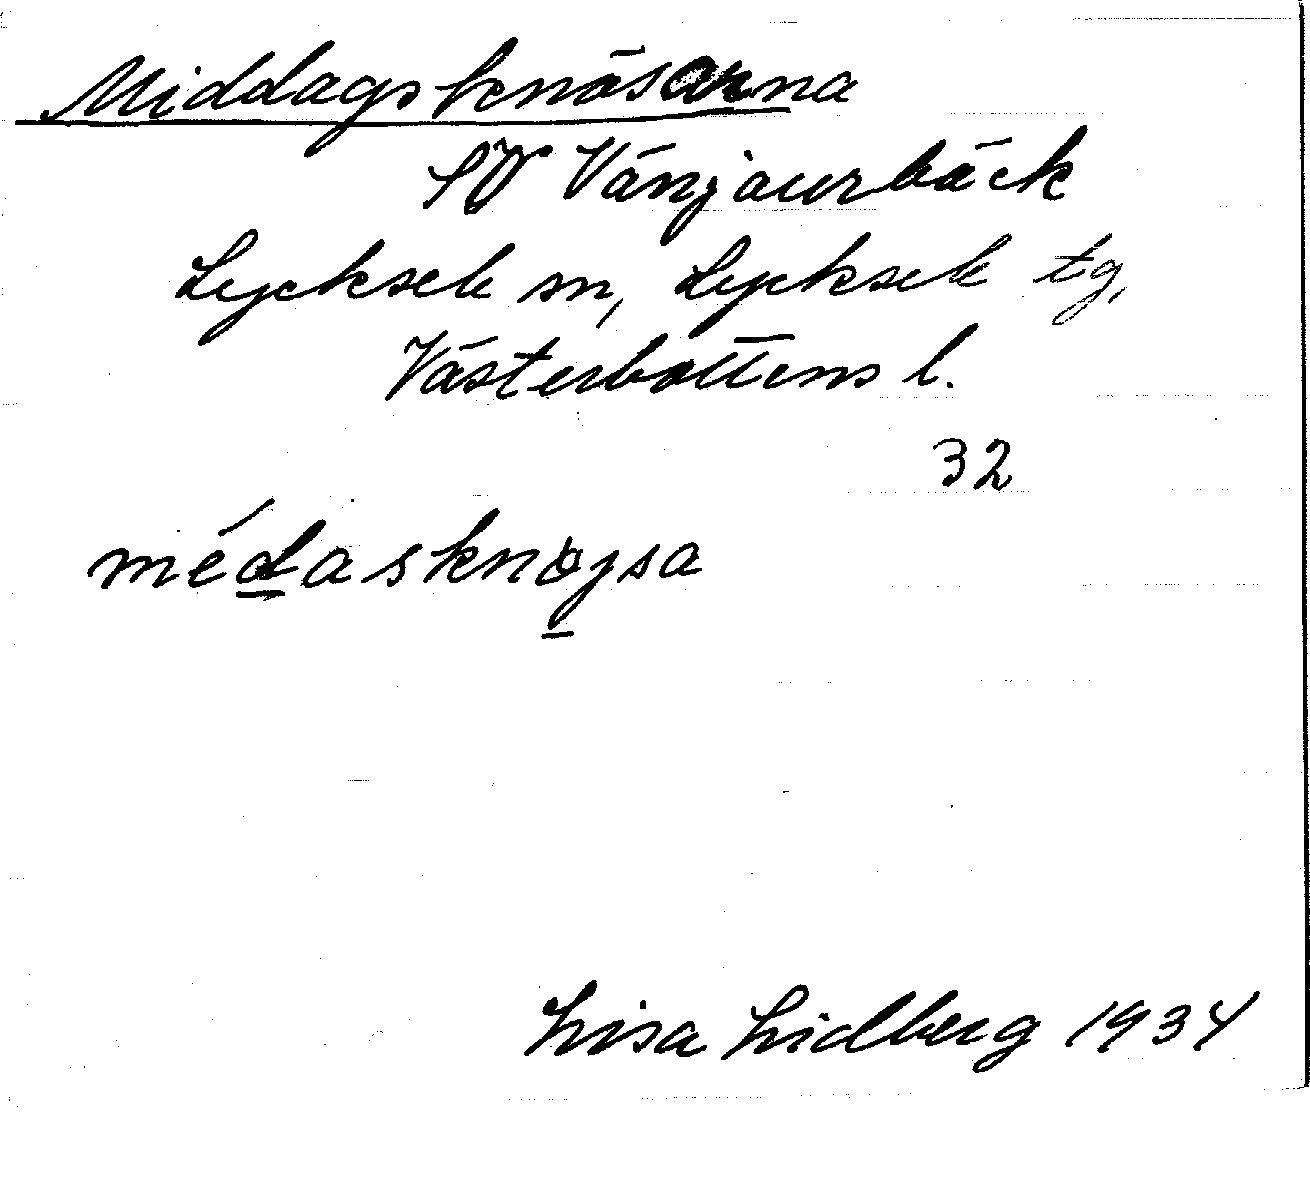 Middagsknösarna
SV Vänjaurbäck
Lycksele sn, Lycksele tg,
Västerbottens l.
32
médasknøjsa
Lisa Lidberg 1934